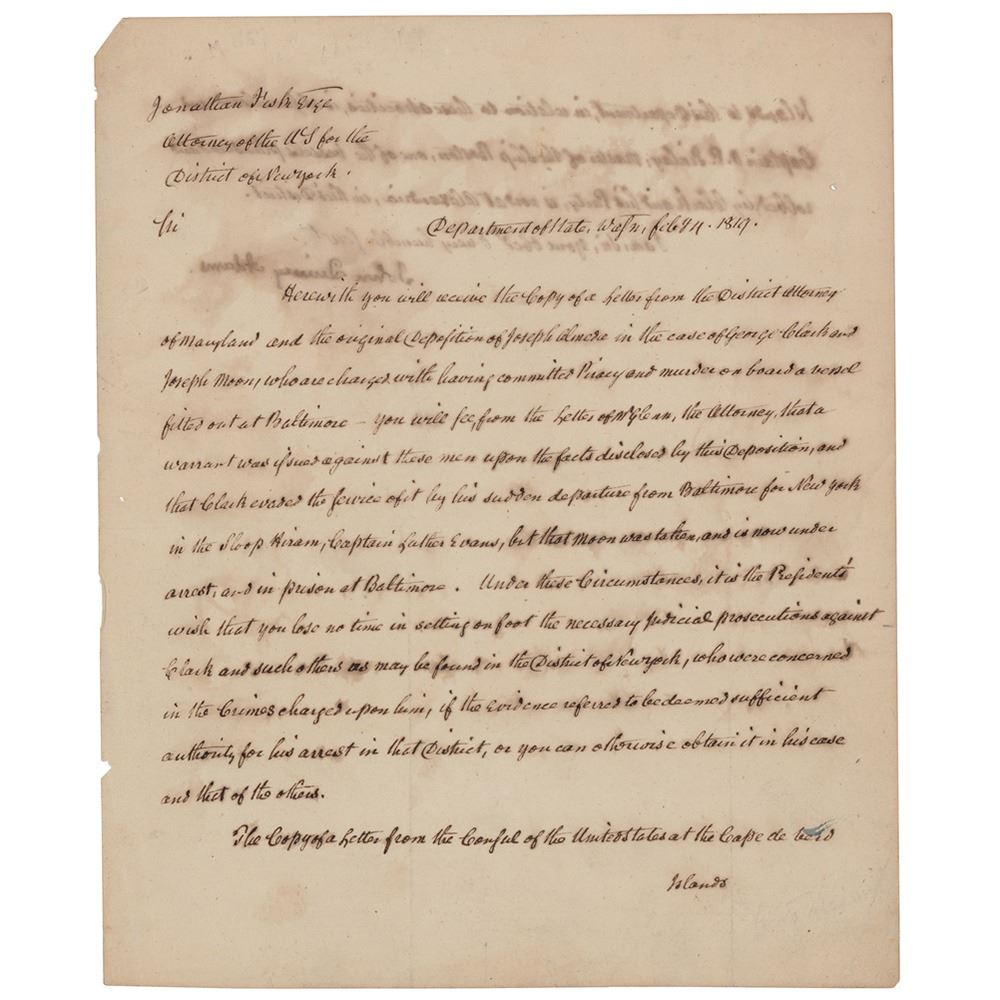 Jonathan Fisk Esqe
Attorney of the US for the
District of New York.
Sir
Department of State, Wasn, feby 4. 1819.
Herewith you will receive the Copy of a Letter from the District Attorney
of Maryland and the original Deposition of Joseph Almeda in the case of George Clark and
Joseph Moon, who are charged with having committed Piracy and murder on board a vessel
fitted out at Baltimore - you will see, from the Letter of Mr Glenn, the Attorney, that a
warrant was issued against these men upon the facts disclosed by this Deposition, and
that Clark evaded the service of it by his sudden departure from Baltimore for New York
in the Sloop Hiram, Captain Luther Evans, but that Moon was taken, and is now under
arrest, and in prison at Baltimore. Under these Circumstances, it is the Presidents'
wish that you lose no time in setting on foot the necessary judicial prosecutions against
Clark and such others as may be found in the District of New york, who were concerned
in the Crimes charged upon him, if the Evidence referred to be deemed sufficient
authority for his arrest in that District, or you can otherwise obtain it in his case
and that of the others.
The Copy of a Letter from the Consul of the United States at the Cape de Verd
Islands